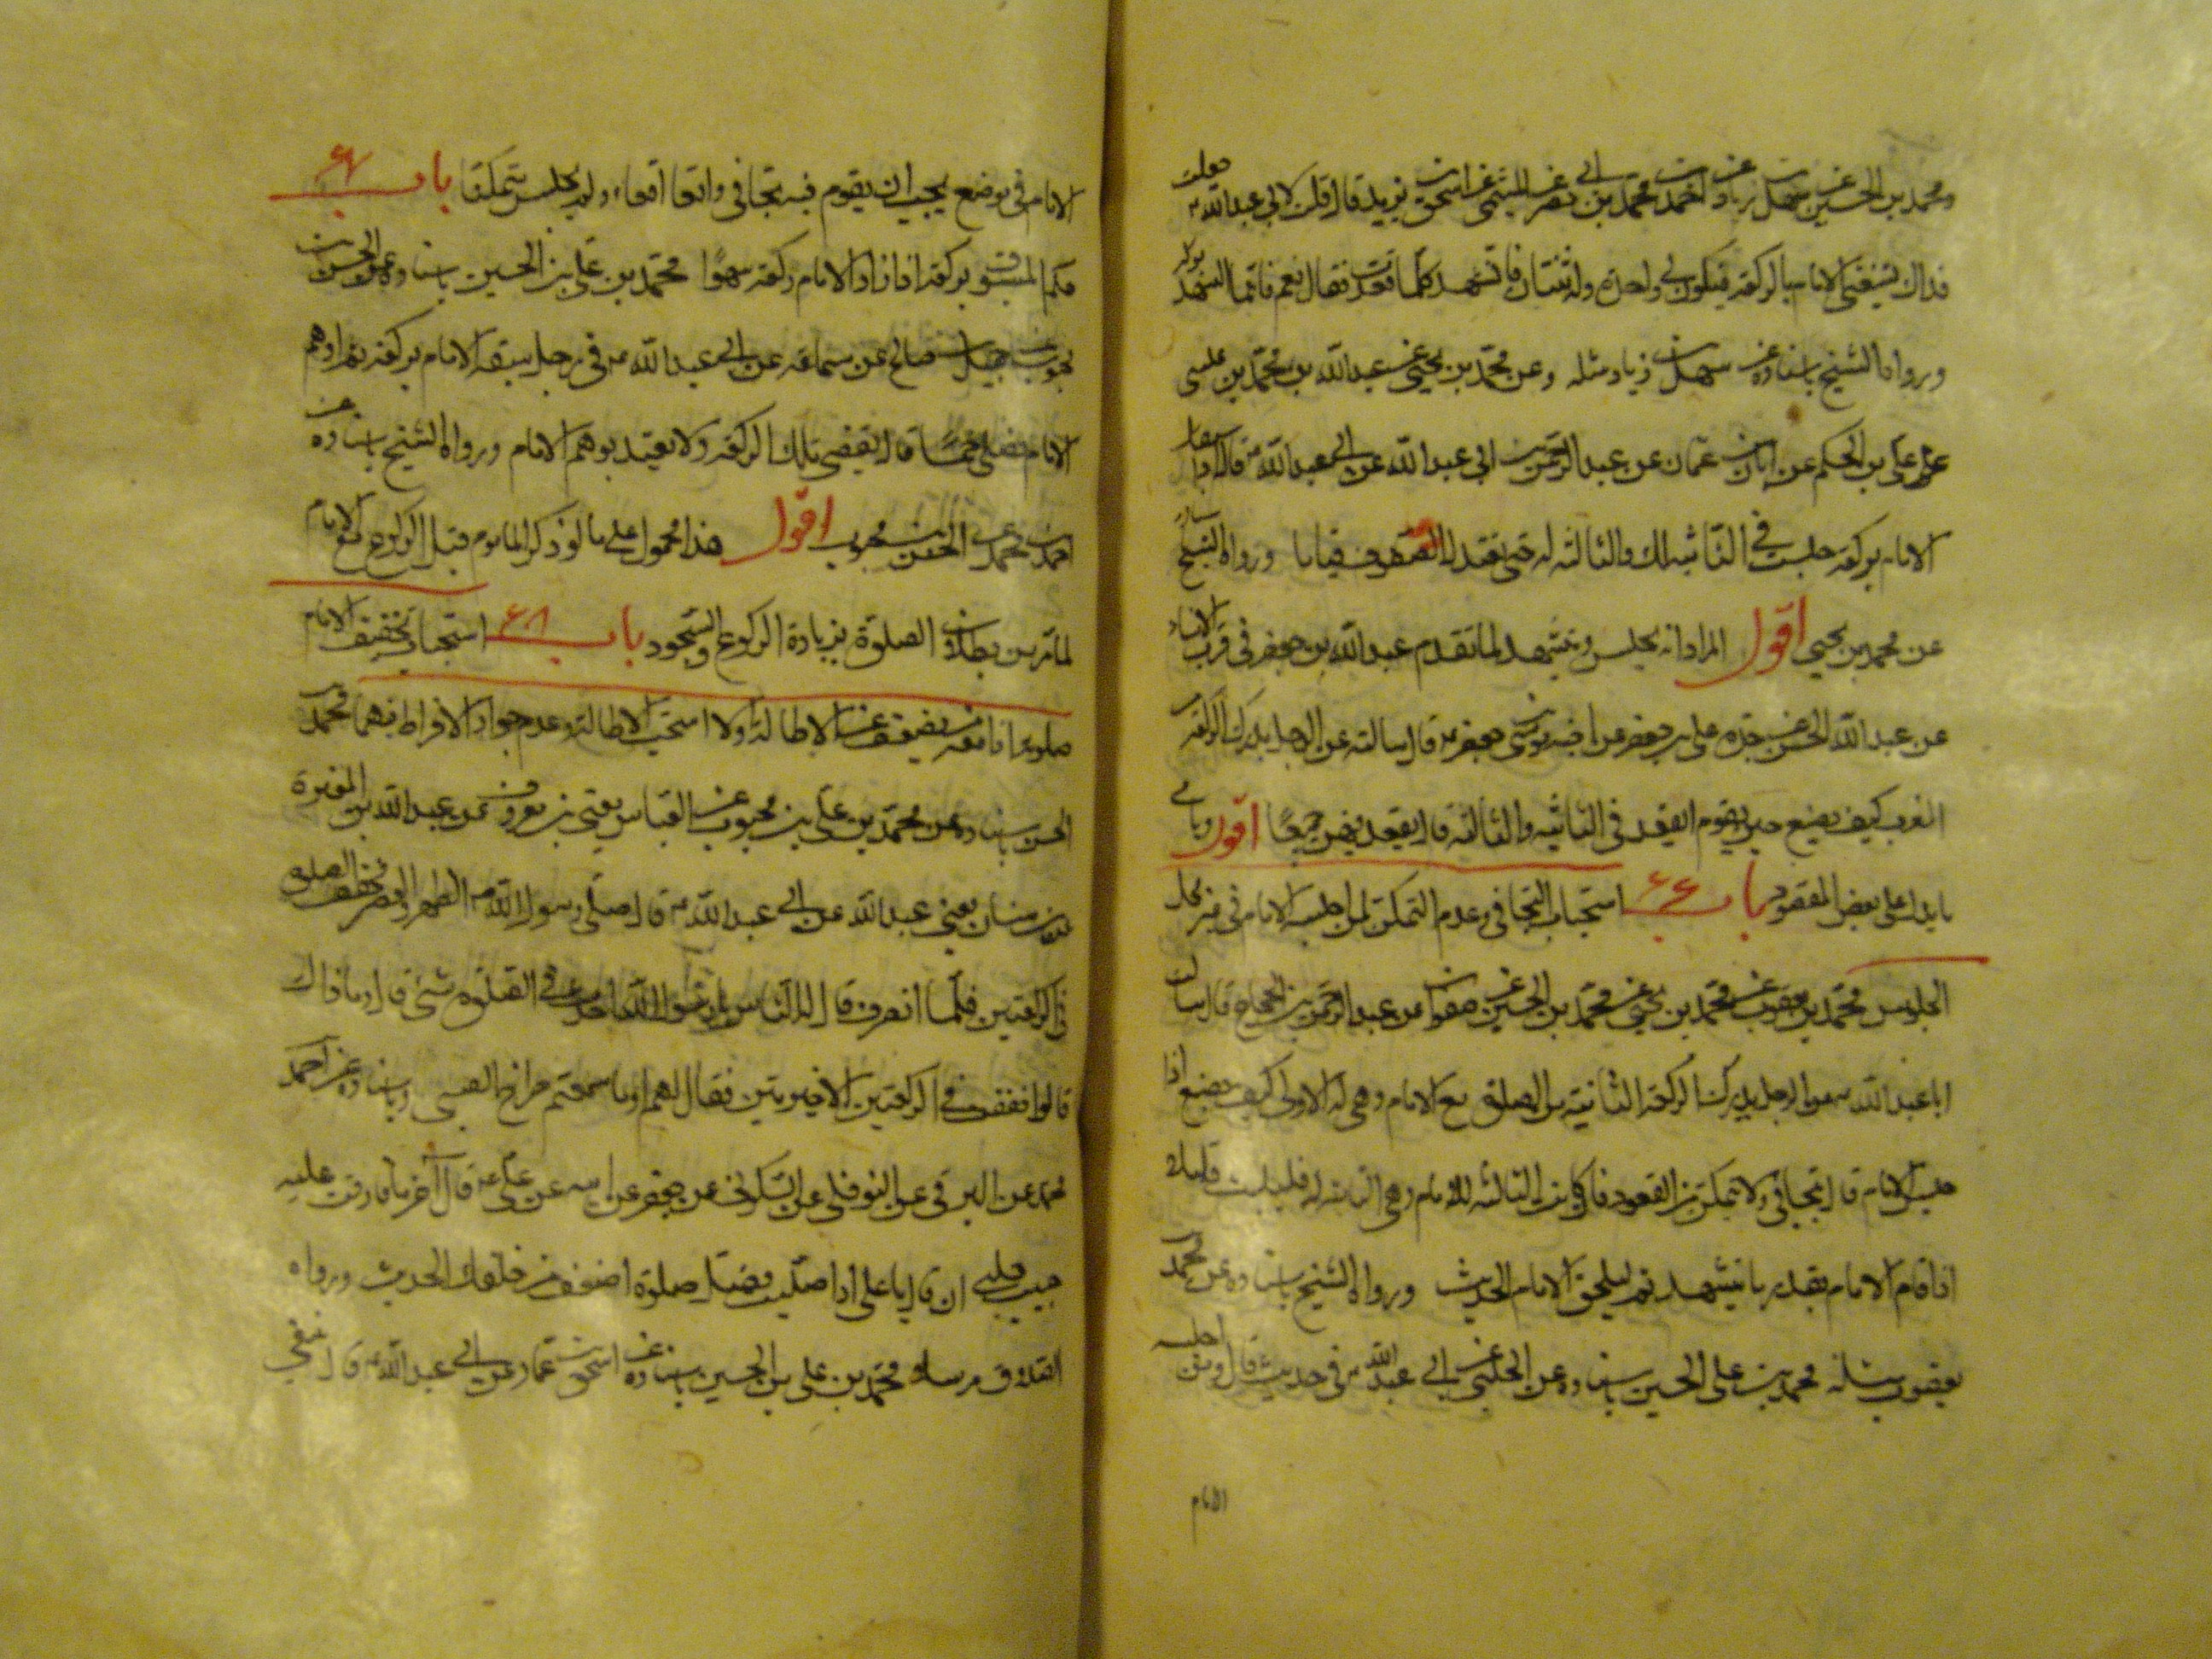 ومحمد بن الحسن عن سهل بن زياد عن أحمد بن محمد بن أبي نصر عن الميثمي عن اسحق بن يزيد قال قلت لابي عبد الله ع جعلت
فداك يسبقني الامام بالركعة فيكون لي واحدة وله ثنتان فاتشهد كلما قعدت فقال نعم فانما التشهد بركة
ورواه الشيخ باسناده عن سهل بن زياد مثله وعن محمد بن يحيى عن عبد الله بن محمد بن عيسى
عن علي بن الحكم عن ابان بن عثمان عن عبد الرحمن بن ابي عبد الله عن ابي عبد الله ع قال اذا سبقك
الامام بركعة جلست في الثانية لك والثالثة له حتى تعتدل الصفوف قياما ورواه الشيخ
عن محمد بن يحيى اقول المراد انه يجلس ويتشهد لما تقدم عبد الله بن جعفر في قرب الاسناد
عن عبد الله بن الحسن عن جده علي بن جعفر عن اخيه موسى بن جعفر ع قال سالته عن الرجل يدرك الركعة من
المغرب كيف يصنع حين يقوم ايقعد في الثانية والثالثة قال يقعد فيهن جميعا اقول وياتي
ما يدل على بعض المقصود باب ٦٦ استحباب التجافي وعدم التمكن لمن اجلسه الامام في غير محل
الجلوس محمد بن يعقوب عن محمد بن يحيى عن محمد بن الحسين عن صفوان عن عبد الرحمن بن الحجاج قال سالت
ابا عبد الله ع عن الرجل يدرك الركعة الثانية من الصلوة مع الامام وهي له الاولى كيف يصنع اذا
جلس الامام قال يتجافى ولا يتمكن من القعود فاذا كانت الثالثة للامام وهي الثانية له فليلبث قليلا
اذا قام الامام بقدر ما يتشهد ثم ليلحق الامام الحديث ورواه الشيخ باسناده عن محمد بن
يعقوب مثله محمد بن علي بن الحسين باسناده عن الحلبي عن ابي عبد الله ع في حديث قال ومن اجلسه
الامام
الامام في موضع يجب ان يقوم فيه تجافى واقعا اقعاء ولم يجلس متمكنا باب ٦٧
حكم المسبوق بركعة اذا زاد الامام ركعة سهوا محمد بن علي بن الحسين باسناده عن الحسن بن
محبوب عن جميل بن صالح عن سماعة عن ابي عبد الله ع في رجل سبقه الامام بركعة ثم اوهم
الامام فصلى خمسا قال يقضي تلك الركعة ولا يعتد بوهم الامام ورواه الشيخ باسناده عن
احمد بن محمد عن الحسن بن محبوب اقول هذا محمول على ما لو ذكر الماموم قبل الركوع مع الامام
لما مر من بطلان الصلوة بزيادة الركوع والسجود باب ٦٨ استحباب تخفيف الامام
صلوته اذا كان معه من يضعف عن الاطالة والا استحب الاطالة وعدم جواز الافراط فيهما محمد بن
الحسن باسناده عن محمد بن علي بن محبوب عن العباس يعني بن معروف عن عبد الله بن المغيرة
عن ابن سنان يعني عبد الله عن ابي عبد الله ع قال صلى رسول الله ص الظهر والعصر فخفف الصلوة
في الركعتين فلما انصرف قال له الناس يا رسول الله احدث في الصلوة شئ قال وما ذاك
قالوا خففت في الركعتين الاخيرتين فقال لهم او ما سمعتم صراخ الصبي وباسناده عن احمد بن
محمد عن البرقي عن النوفلي عن السكوني عن جعفر عن ابيه عن علي ع قال آخر ما فارقت عليه
حبيب قلبي ان قال يا علي اذا صليت فصل صلوة اضعف من خلفك الحديث ورواه
الصدوق مرسلا محمد بن علي بن الحسين باسناده عن اسحق بن عمار عن ابي عبد الله ع قال ينبغي